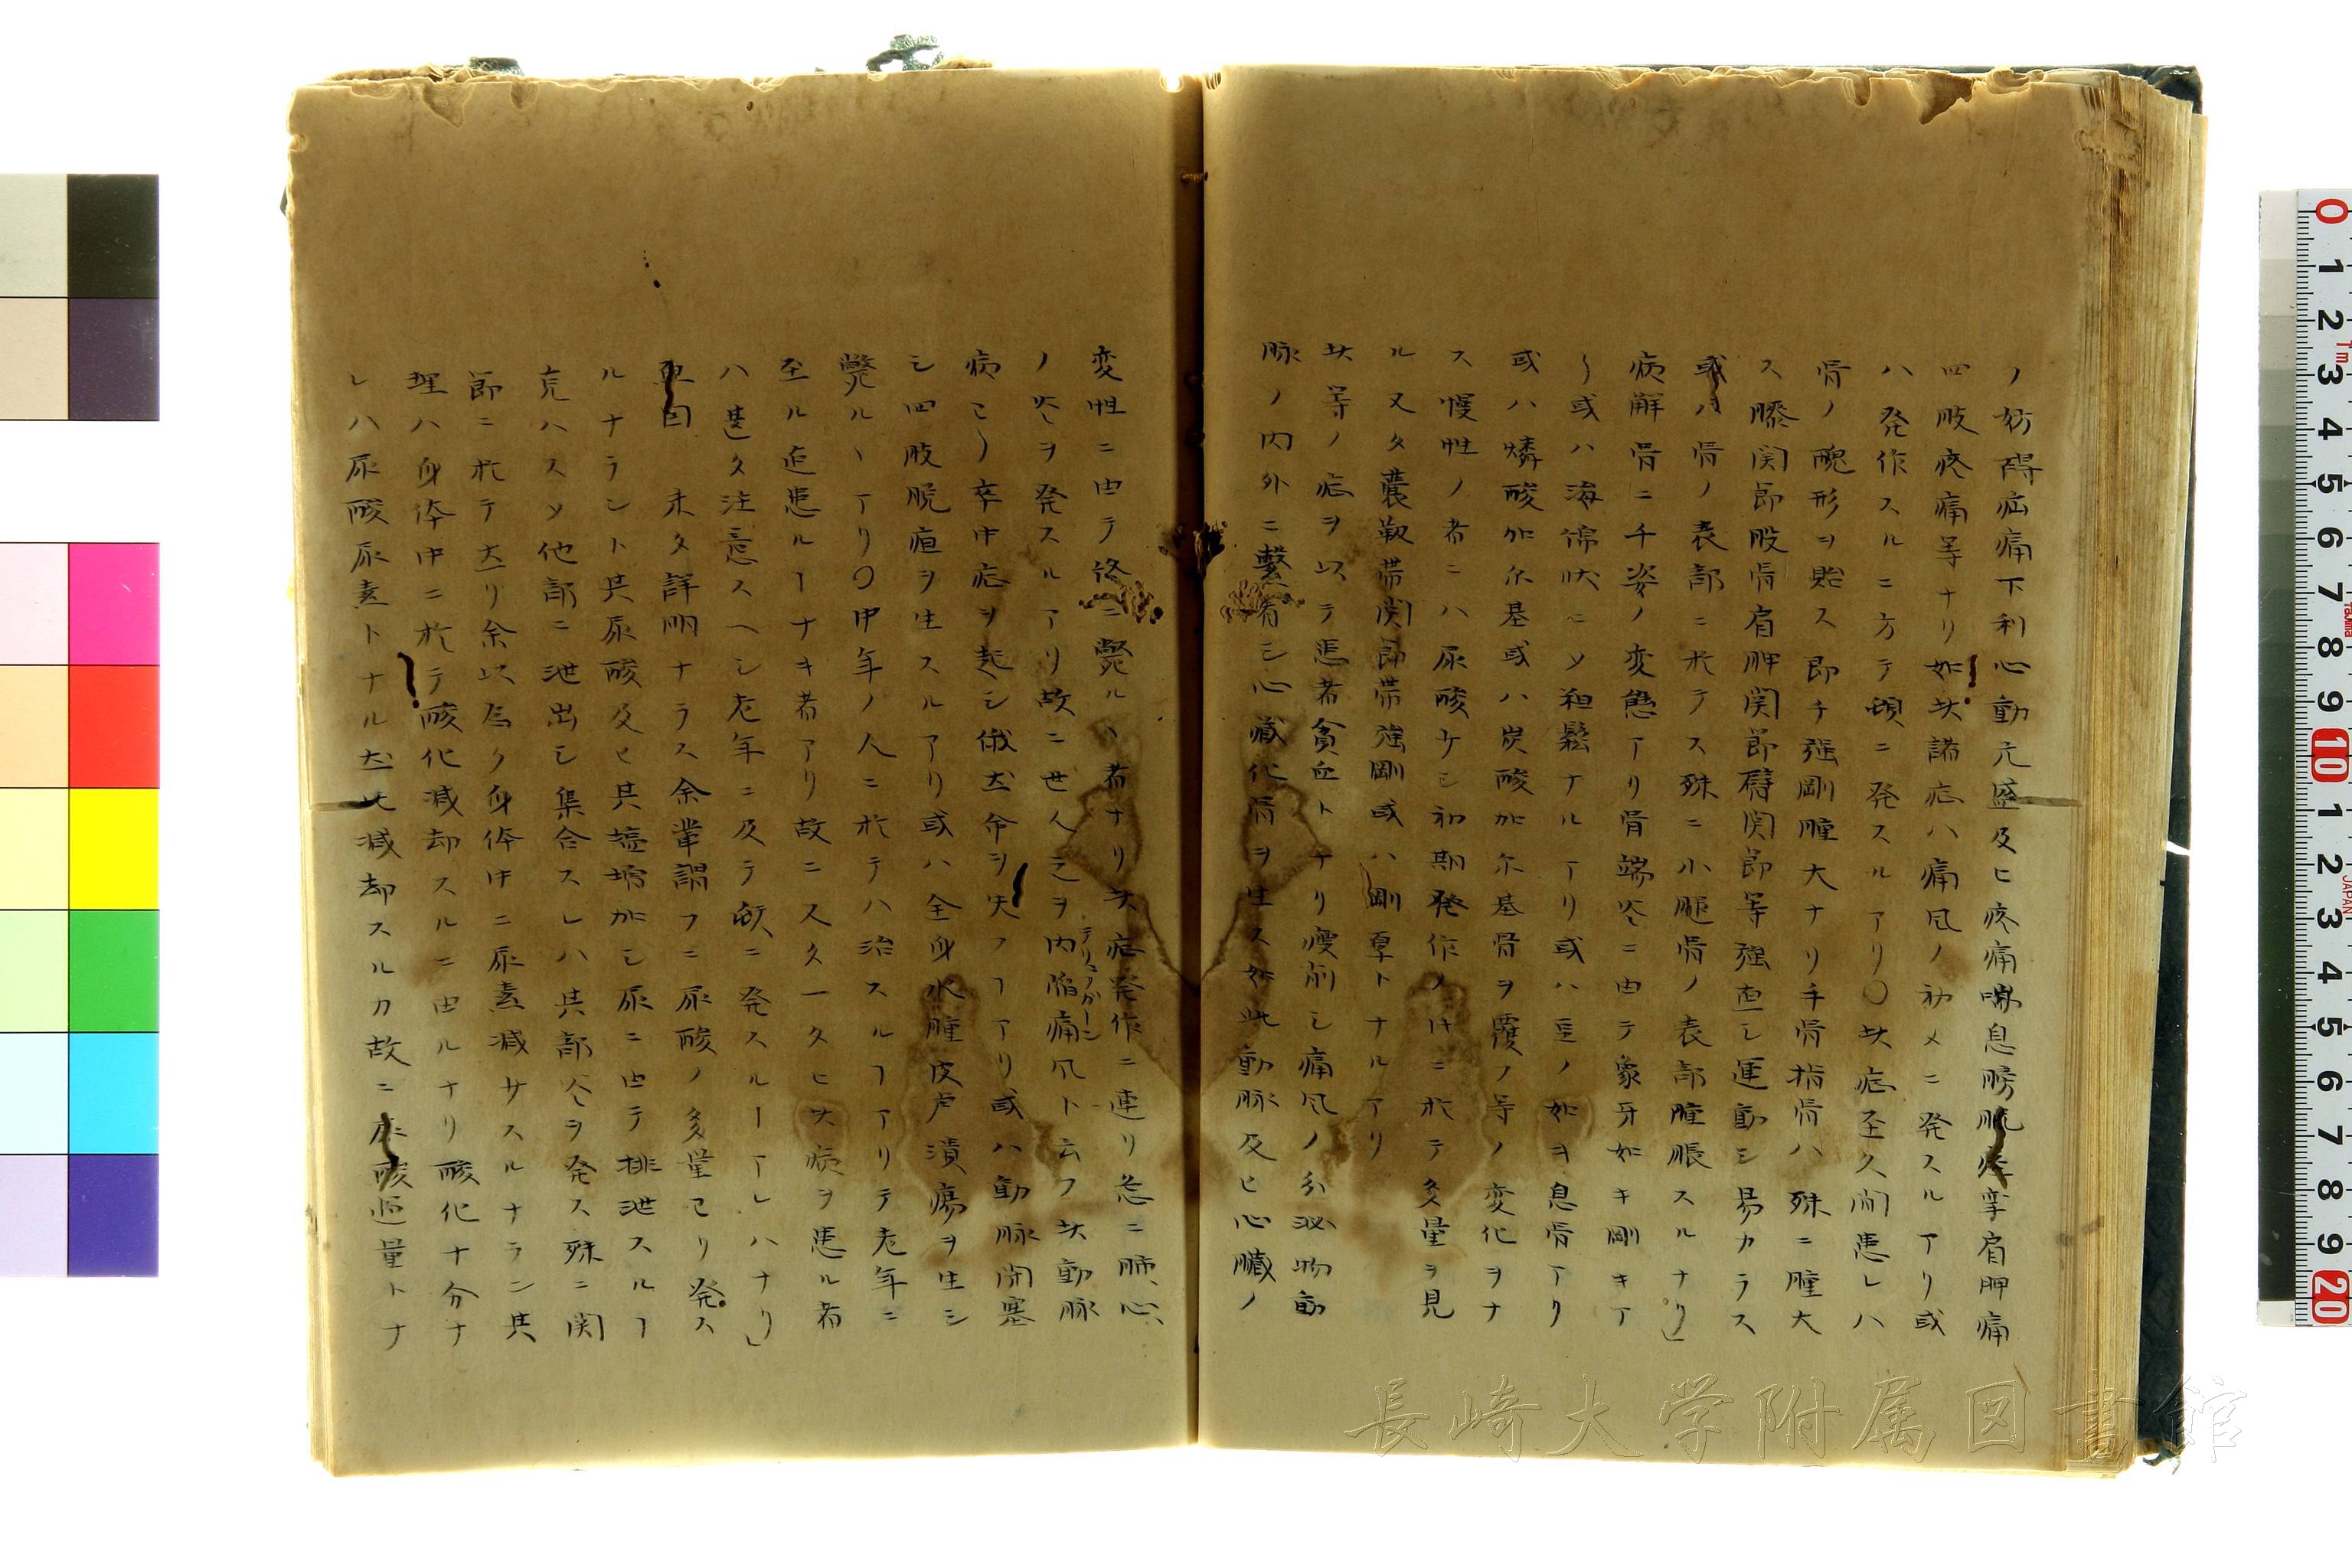 ノ妨碍疝痛下利心動亢盛及ヒ疼痛喘息膀胱痙攣肩胛痛
四肢疼痛等ナリ如此諸症ハ痛風ノ初メニ発スルアリ或
ハ発作スルニ方テ頓ニ発スルアリ〇此症至久間患レハ
骨ノ醜形ヲ貽ス即チ強剛腫大ナリ手骨指骨ハ殊ニ腫大
ス膝関節股骨肩胛関節臂関節等強直シ運動シ易カラス
或ハ骨ノ表部ニ於テス殊ニ小腿骨ノ表部腫脹スルナリ」
病解骨ニ千姿ノ変態アリ骨端炎ニ由テ象牙如キ剛キア
リ或ハ海綿状ニソ粗鬆ナルアリ或ハ豆ノ如ヲ息骨アリ
或ハ燐酸加尓基或ハ炭酸加尓基骨ヲ覆フ等ノ変化ヲナ
ス慢性ノ者ニハ尿酸ケシ初期発作ノ中ニ於テ多量ヲ見
ル又タ嚢靱帯関節帯強剛或ハ剛厚トナルアリ
此等ノ症ヲ以テ患者貪血トナリ瘦削シ痛風ノ分泌物動
脉ノ内外ニ繋着シ心臓化骨ヲ生ス如此動脉及ヒ心臓ノ
変性ニ由テ終ニ斃ルヽ者ナリ此症発作ニ連リ急ニ肺、心、
ノ炎ヲ発スルアリ故ニ世人之ヲ内陥痛風ト云フ此動脉
病ヨリ卒中症ヲ起シ俄ニ命ヲ失フヿアリ或ハ動脉閉塞
シ四肢脱疽ヲ生スルアリ或ハ全身水腫皮膚潰瘍ヲ生シ
斃ルヽアリ〇中年ノ人ニ於テハ治スルヿアリテ老年ニ
至ル迄患ルヿナキ者アリ故ニ又タ一タヒ此病ヲ患ル者
ハ甚タ注意スヘシ老年ニ及テ頻ニ発スルヿアレハナリ」
原因　未タ詳明ナラス余輩謂フニ尿酸ノ多量ヨリ発ス
ルナラント其尿酸及ヒ其塩増加シ尿ニ由テ排泄スルヿ
克ハスソ他部ニ泄出シ集合スレハ其部炎ヲ発ス殊ニ関
節ニ於テ然リ余以為ク身体中ニ尿素減サスルナラン其
理ハ身体中ニ於テ酸化減却スルニ由ルナリ酸化十分ナ
レハ尿酸尿素トナル然此減却スルカ故ニ尿酸過量トナ